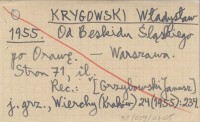 KRYGOWSKI Władysław
1955. Od Beskidu Śląskiego
po Orawę. — Warszawa.
Stron 71, il.
Rec.: [Grzybowski Janusz]
j. grz., Wierchy (Kraków) 24 (1955): 239